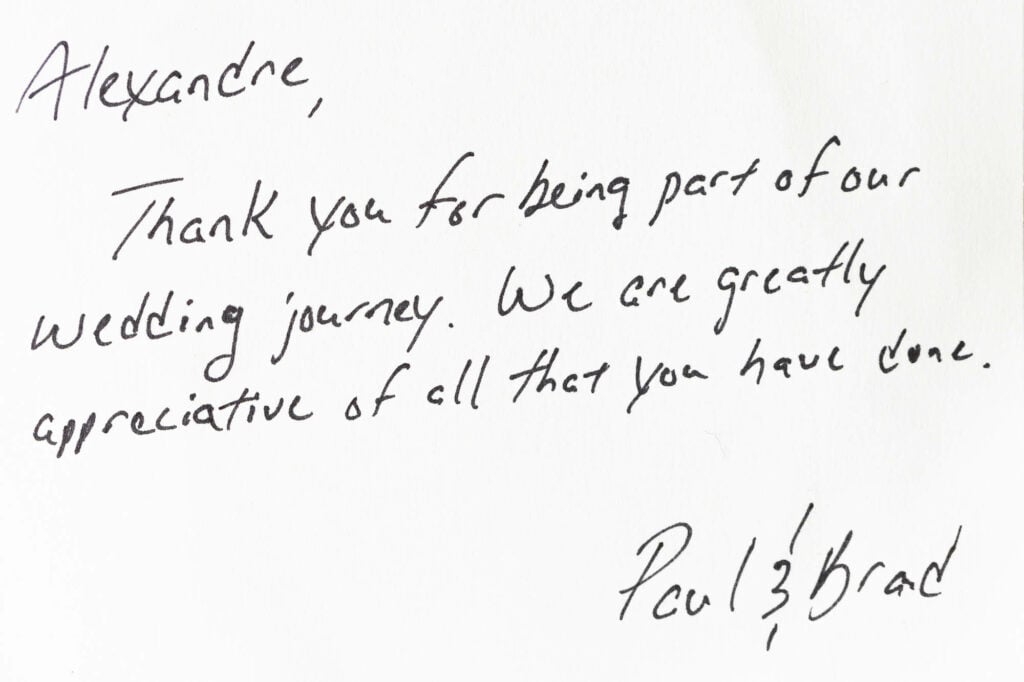 Alexandre,
Thank you for being part of our
wedding journey. We are greatly
appreciative of all that you have done.
Paul & Brad